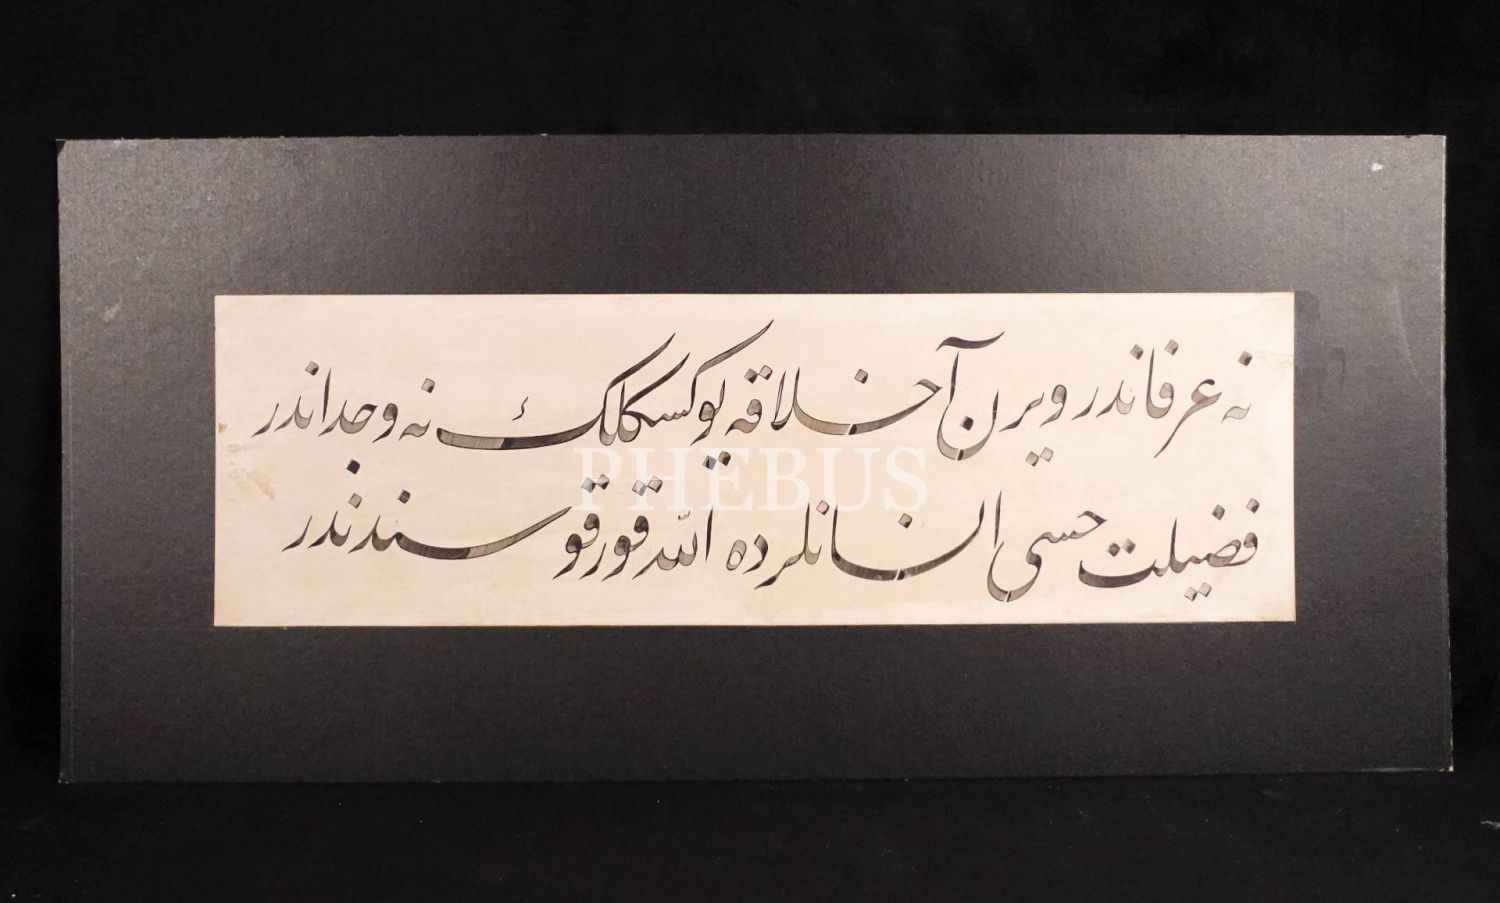 نه عرفاندر ویرن آخلاقه یوكسكلك نه وجداندر
فضیلت حسی انسانلرده الله قورقوسندندر
PHEBUS